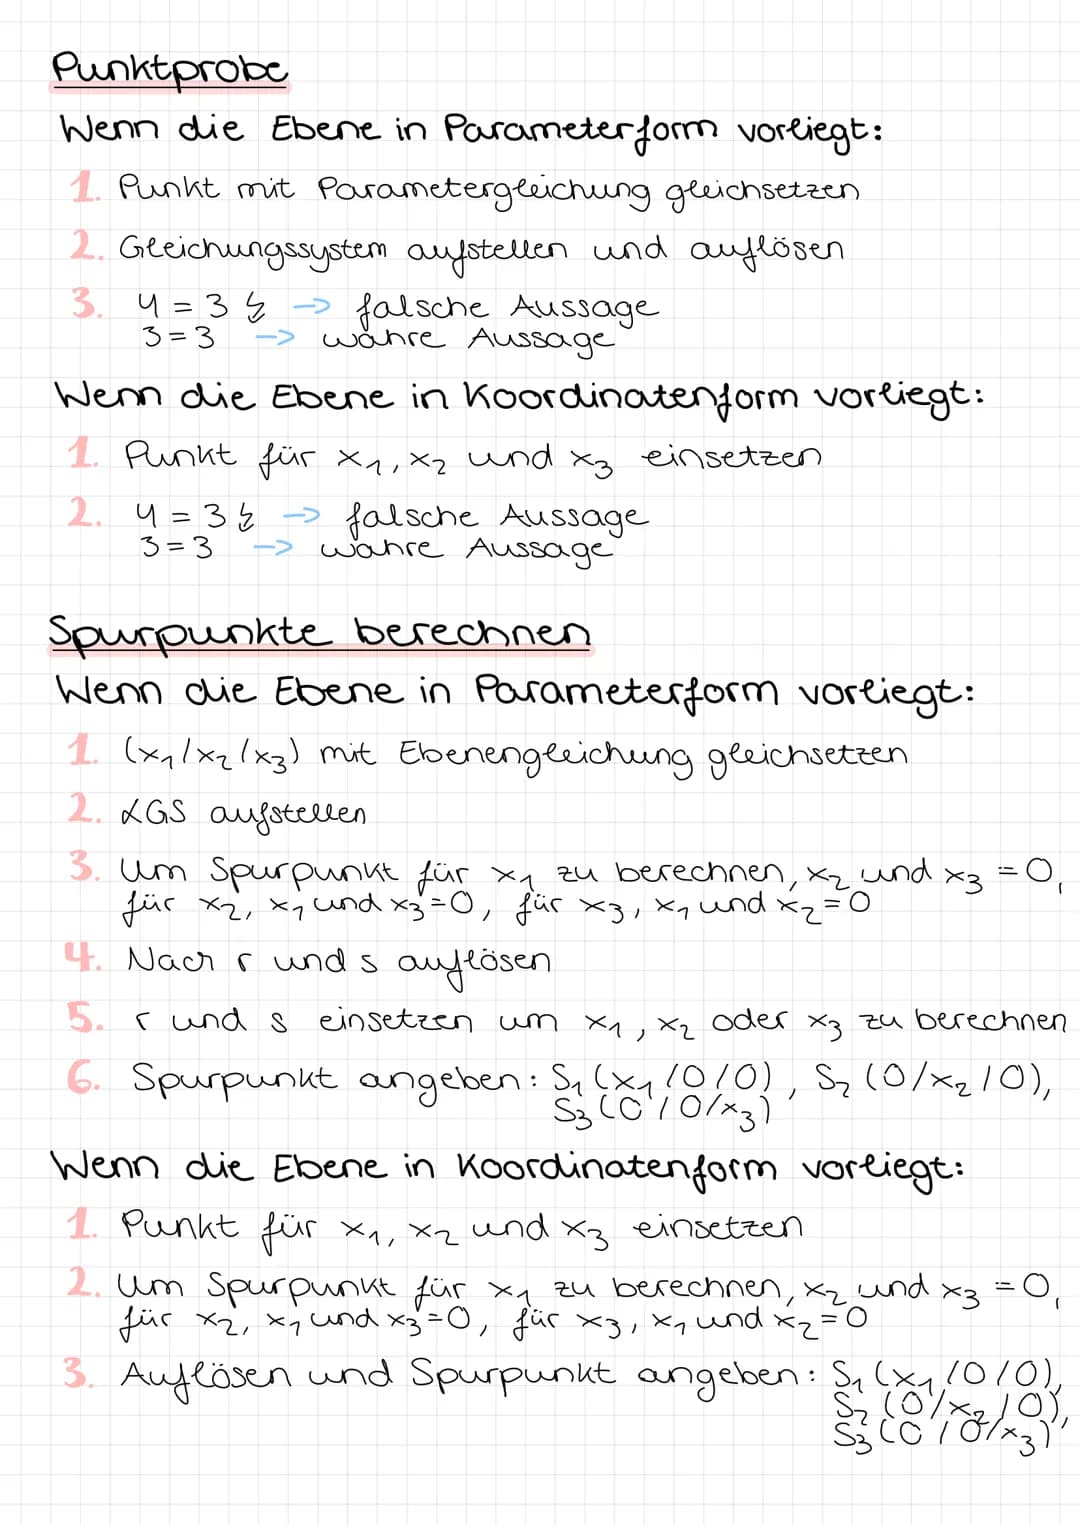 Punktprobe
Wenn die Ebene in Parameterform vorliegt:
1. Punkt mit Parametergleichung gleichsetzen
2. Gleichungssystem aufstellen und auflösen
3. 4 = 3 ↯ → falsche Aussage
3 = 3 → wahre Aussage
Wenn die Ebene in Koordinatenform vorliegt:
1. Punkt für x₁, x₂ und x₃ einsetzen
2. 4 = 3 ↯ → falsche Aussage
3 = 3 → wahre Aussage
Spurpunkte berechnen
Wenn die Ebene in Parameterform vorliegt:
1. (x₁/x₂/x₃) mit Ebenengleichung gleichsetzen
2. LGS aufstellen
3. Um Spurpunkt für x₁ zu berechnen, x₂ und x₃ = 0,
für x₂, x₁ und x₃ = 0, für x₃, x₁ und x₂ = 0
4. Nach r und s auflösen
5. r und s einsetzen um x₁, x₂ oder x₃ zu berechnen
6. Spurpunkt angeben: S₁ (x₁/0/0), S₂ (0/x₂/0),
S₃ (0/0/x₃)
Wenn die Ebene in Koordinatenform vorliegt:
1. Punkt für x₁, x₂ und x₃ einsetzen
2. Um Spurpunkt für x₁ zu berechnen, x₂ und x₃ = 0,
für x₂, x₁ und x₃ = 0, für x₃, x₁ und x₂ = 0
3. Auflösen und Spurpunkt angeben: S₁ (x₁/0/0),
S₂ (0/x₂/0),
S₃ (0/0/x₃)